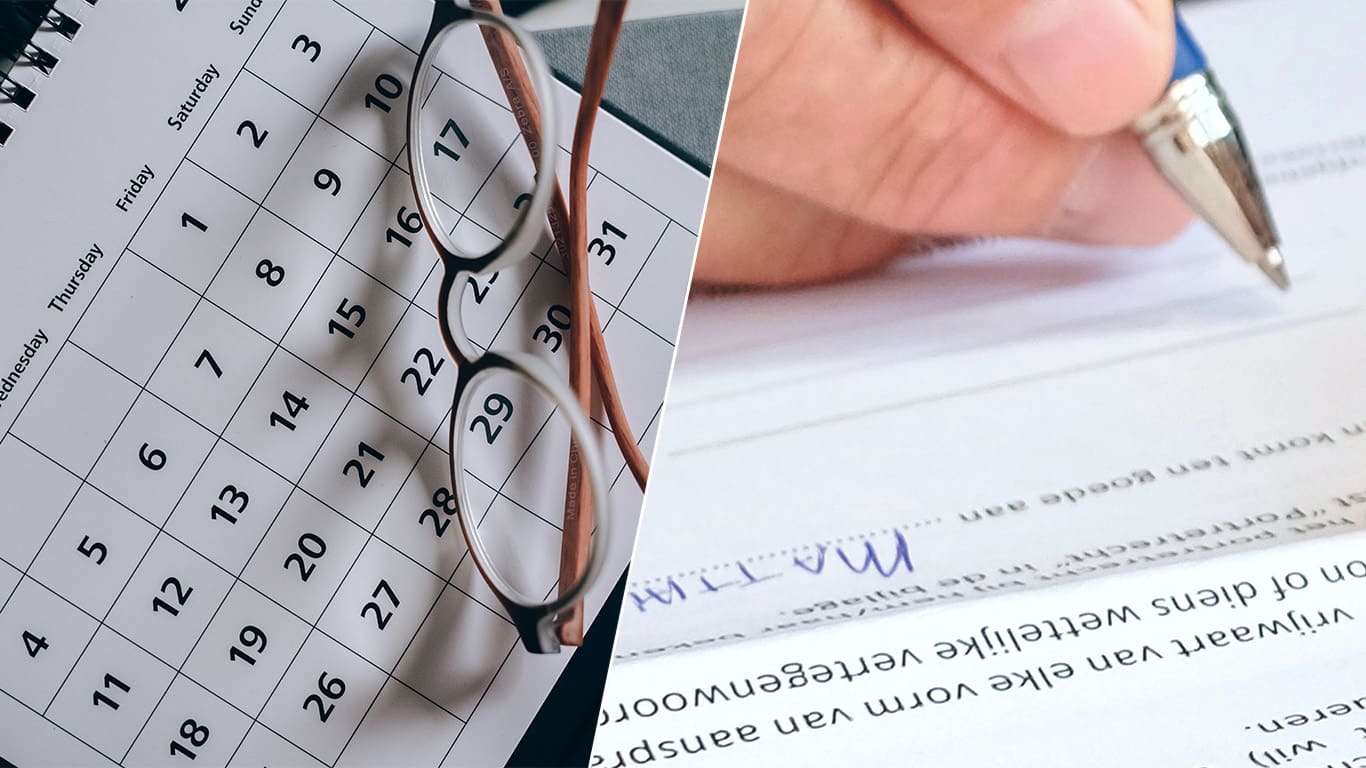 ednesday Thursday Friday Saturday Sund
1 2 3
4 5 6 7 8 9 10
11 12 13 14 15 16 17
18 19 20 21 22 23
26 27 28 29 30 31
Zebra A/S
Made in Ch
wil)
ueren.
vrijwaart van elke vorm van aanspra
on of diens wettelijke vertegenwoord
het portretrecht bij hem/haar
"Portretrecht" in de bijlage.
n komt ten goede aan ... MATTH